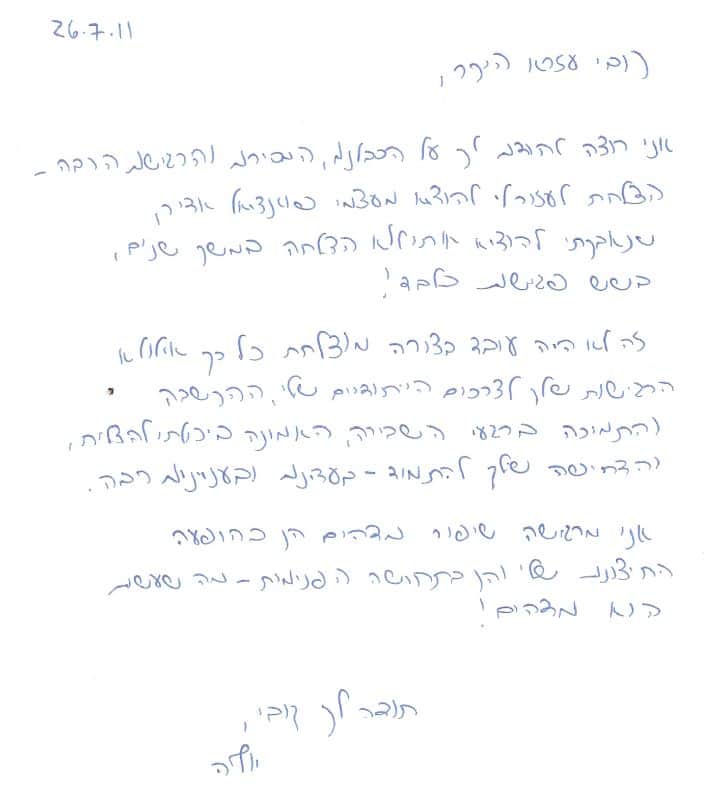 26.7.11
קובי עזרא היקר,
אני רוצה להודות לך על הסבלנות, המסירות והרגישות הרבה -
הצלחת לעזור לי להוציא מעצמי פוטנציאל אדיר,
שנאבקתי להוציא אותי ללא הצלחה במשך שנים,
בשש פגישות בלבד!
זה לא היה עובד בצורה מוצלחת כל כך אילולא
הרגישות שלך לצרכים הייחודיים שלי, ההקשבה
והתמיכה ברגעי השבירה, האמונה ביכולתי להצליח,
והדחיפה שלך להתמיד - בעדינות ובעניינים רבה.
אני מרגישה שיפור מדהים הן בהופעה
החיצונית שלי והן בתחושה הפנימית - מה שעשית
הוא מדהים!
תודה לך קובי,